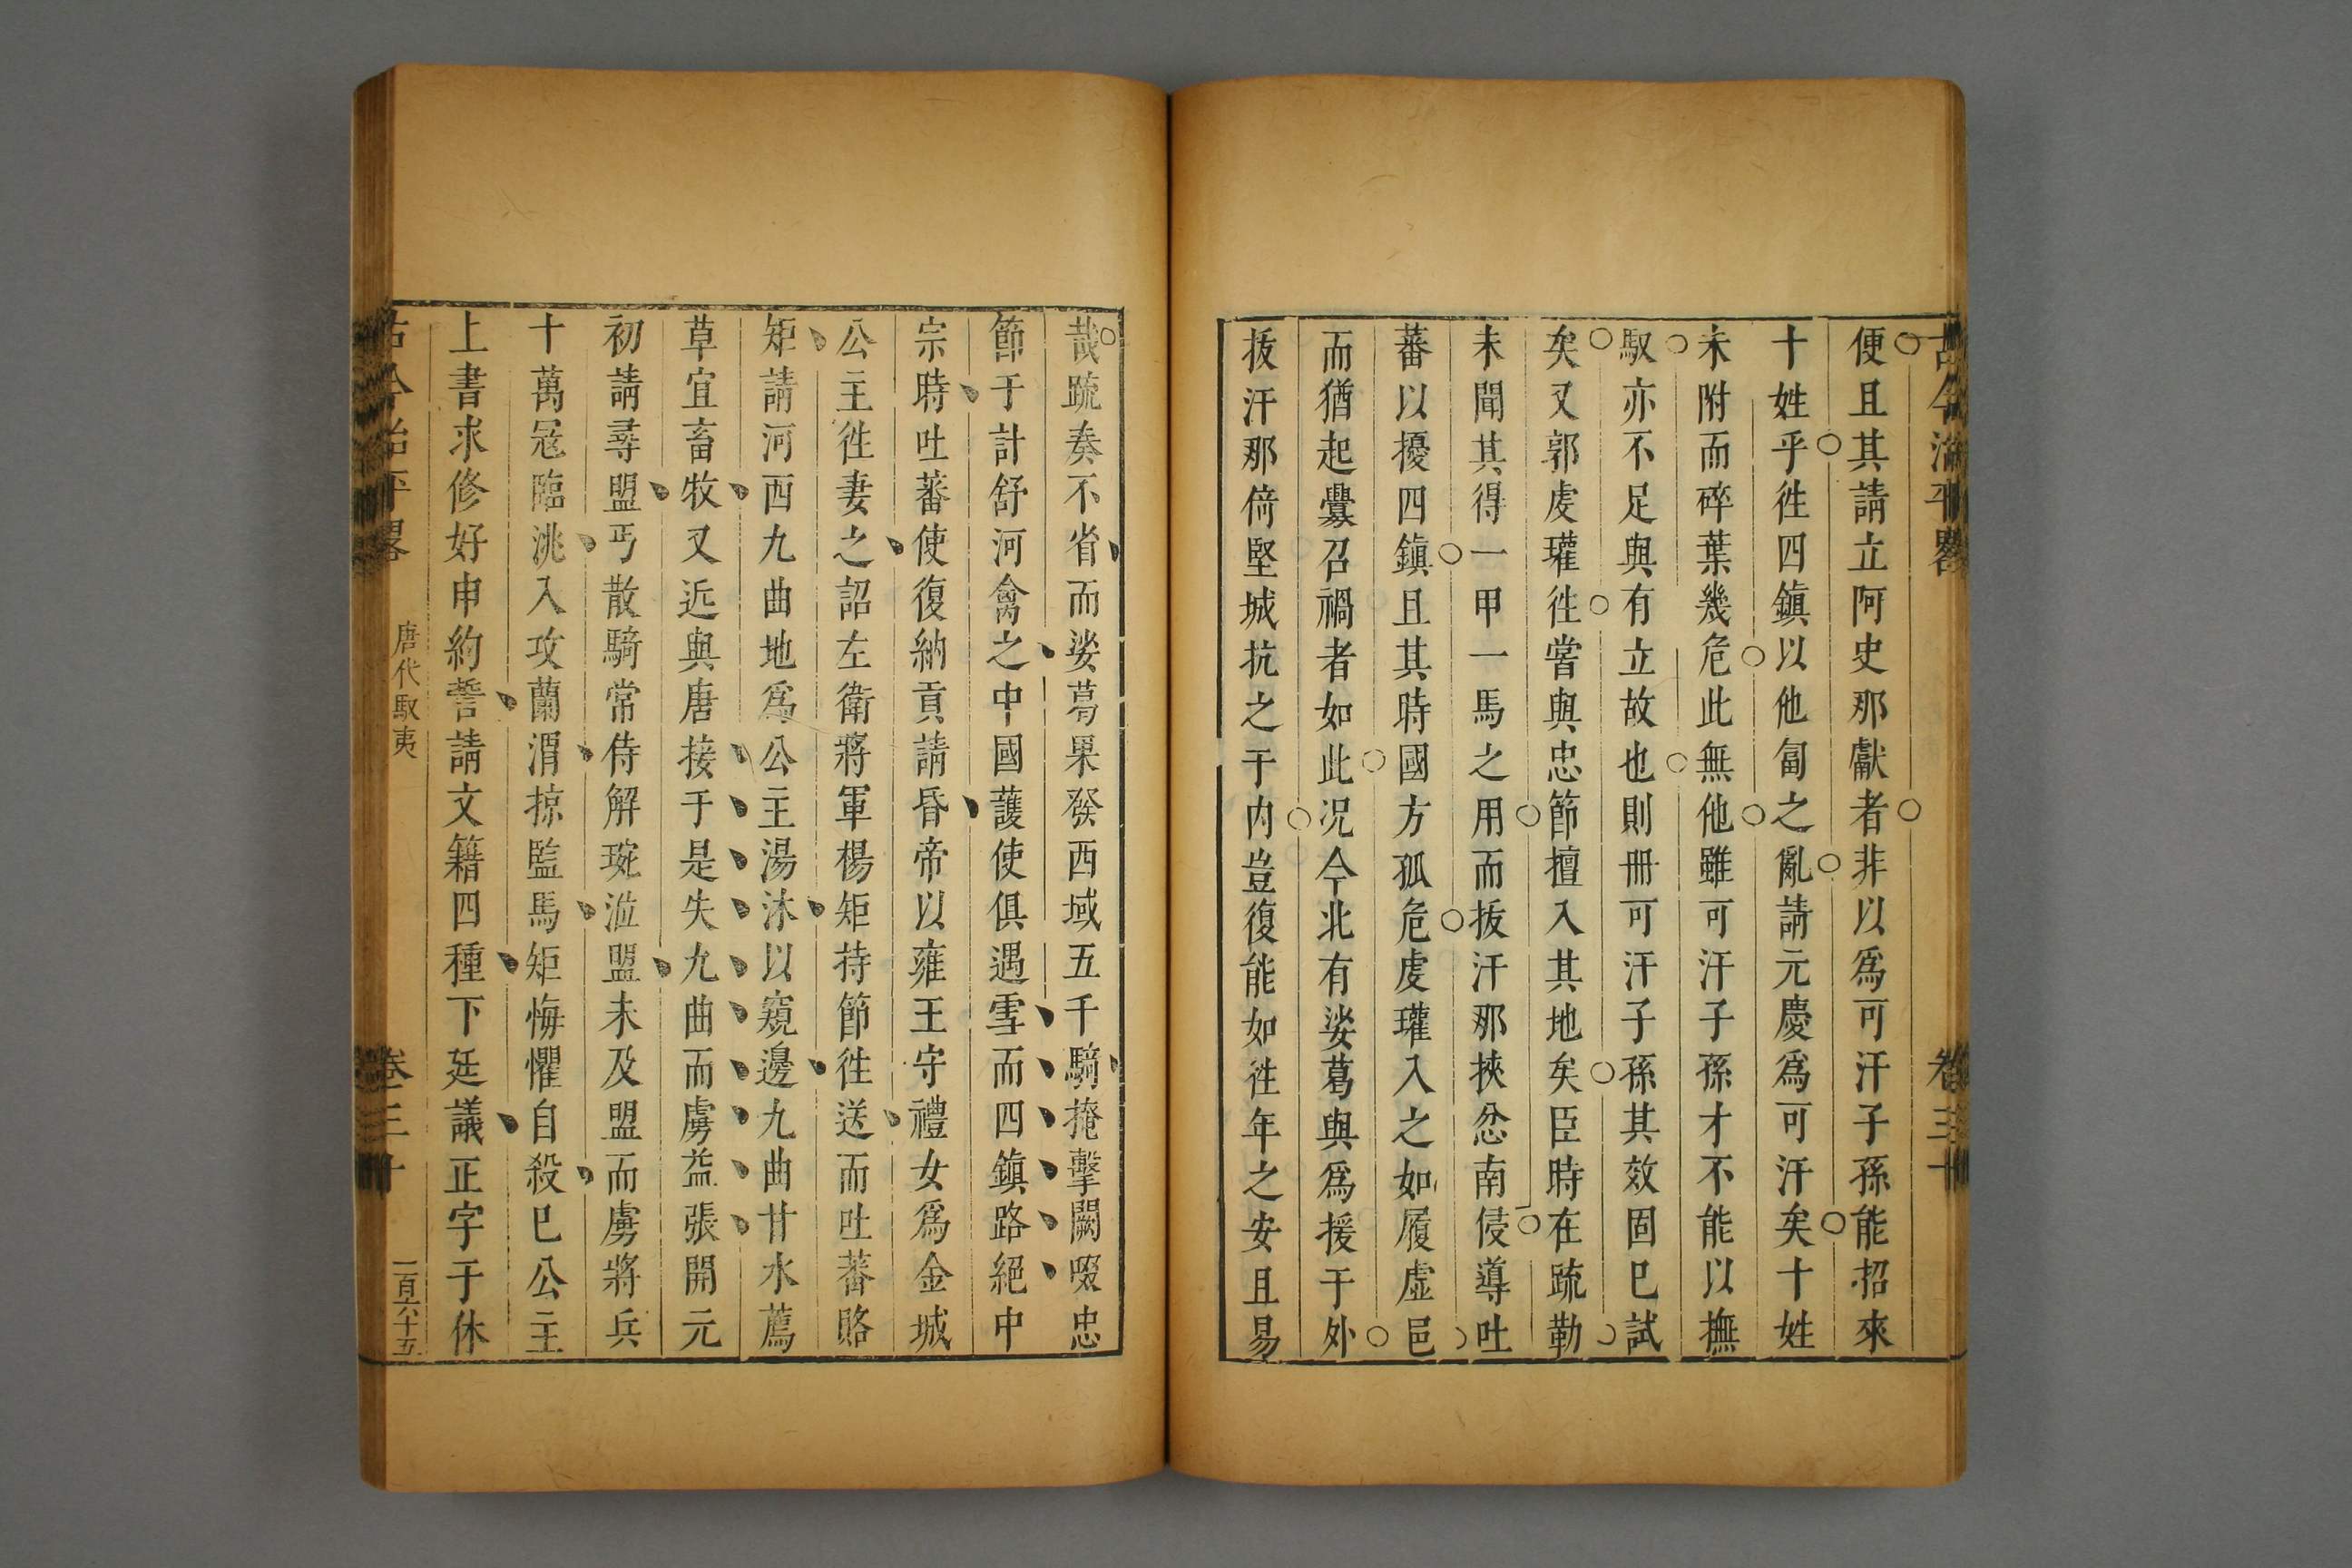 古今治平畧 卷三十
便且其請立阿史那獻者非以爲可汗子孫能招來
十姓乎徃四鎮以他匐之亂請元慶爲可汗矣十姓
未附而碎葉幾危此無他雖可汗子孫才不能以撫
馭亦不足與有立故也則冊可汗子孫其效固巳試
矣又郭虔瓘徃嘗與忠節擅入其地矣臣時在疏勒
未聞其得一甲一馬之用而拔汗那挾忿南侵導吐
蕃以擾四鎮且其時國方孤危虔瓘入之如履虛邑
而猶起釁召禍者如此况今北有娑葛與爲援于外
拔汗那倚堅城抗之于内豈復能如徃年之安且易
哉疏奏不省而娑葛果發西域五千騎掩擊闕啜忠
節于計舒河禽之中國護使俱遇雪而四鎮路絕中
宗時吐蕃使復納貢請昏帝以雍王守禮女爲金城
公主徃妻之詔左衛將軍楊矩持節徃送而吐蕃賂
矩請河西九曲地爲公主湯沐以窺邊九曲甘水薦
草宜畜牧又近與唐接于是失九曲而虜益張開元
初請尋盟丐散騎常侍解琬涖盟未及盟而虜將兵
十萬冦臨洮入攻蘭渭掠監馬矩悔懼自殺巳公主
上書求修好申約誓請文籍四種下廷議正字于休
古今治平畧 唐代馭夷 卷三十 一百六十五